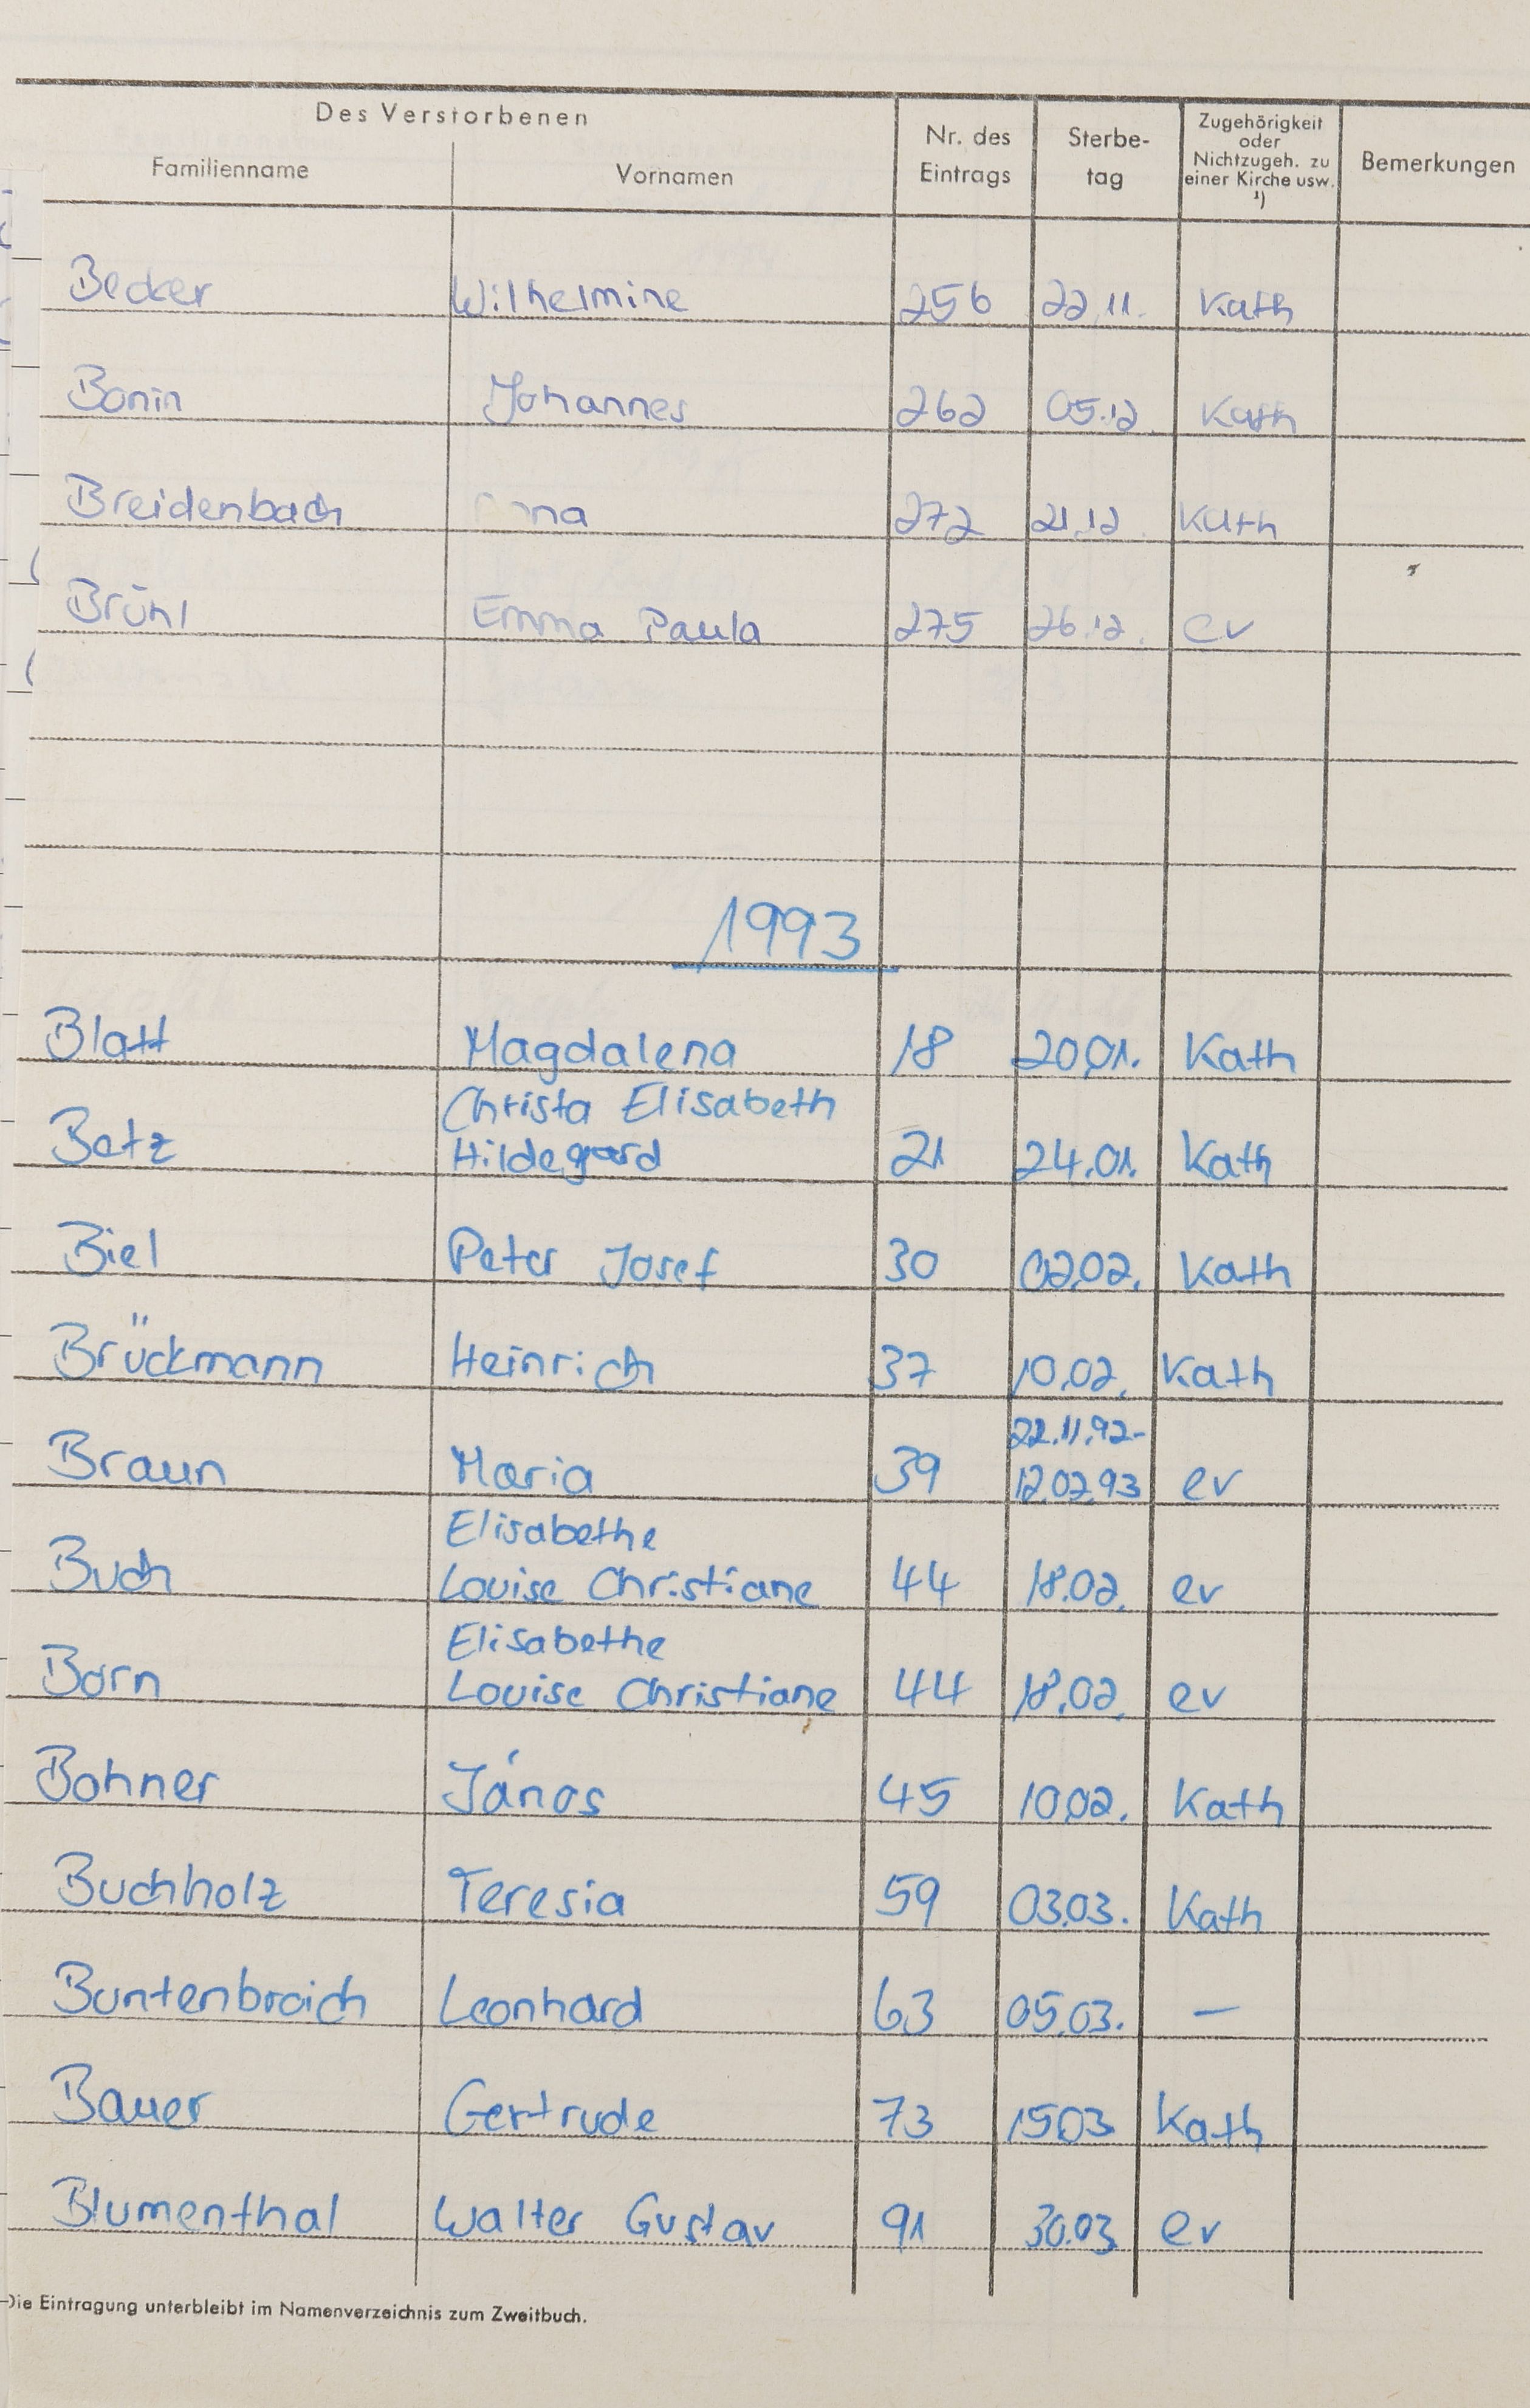 Des Verstorbenen
Familienname Vornamen Nr. des Eintrags Sterbe-tag Zugehörigkeit oder Nichtzugeh. zu einer Kirche usw. ¹) Bemerkungen
Becker Wilhelmine 256 22.11. Kath
Bonin Johannes 262 05.12 Kath
Breidenbach 272 21.12 Kath
Brühl Emma Paula 275 26.12. ev
1993
Blatt Magdalena 18 20.01. Kath
Christa Elisabeth
Betz Hildegard 21 24.01. Kath
Biel Peter Josef 30 02.02. Kath
Brückmann Heinrich 37 10.02. Kath
22.11.92-
Braun Maria 39 12.02.93 ev
Elisabethe
Buch Louise Christiane 44 18.02. ev
Elisabethe
Born Louise Christiane 44 18.02. ev
Bohner János 45 10.02. Kath
Buchholz Teresia 59 03.03. Kath
Buntenbroich Leonhard 63 05.03. —
Bauer Gertrude 73 15.03 Kath
Blumenthal Walter Gustav 91 30.03 ev
Die Eintragung unterbleibt im Namenverzeichnis zum Zweitbuch.